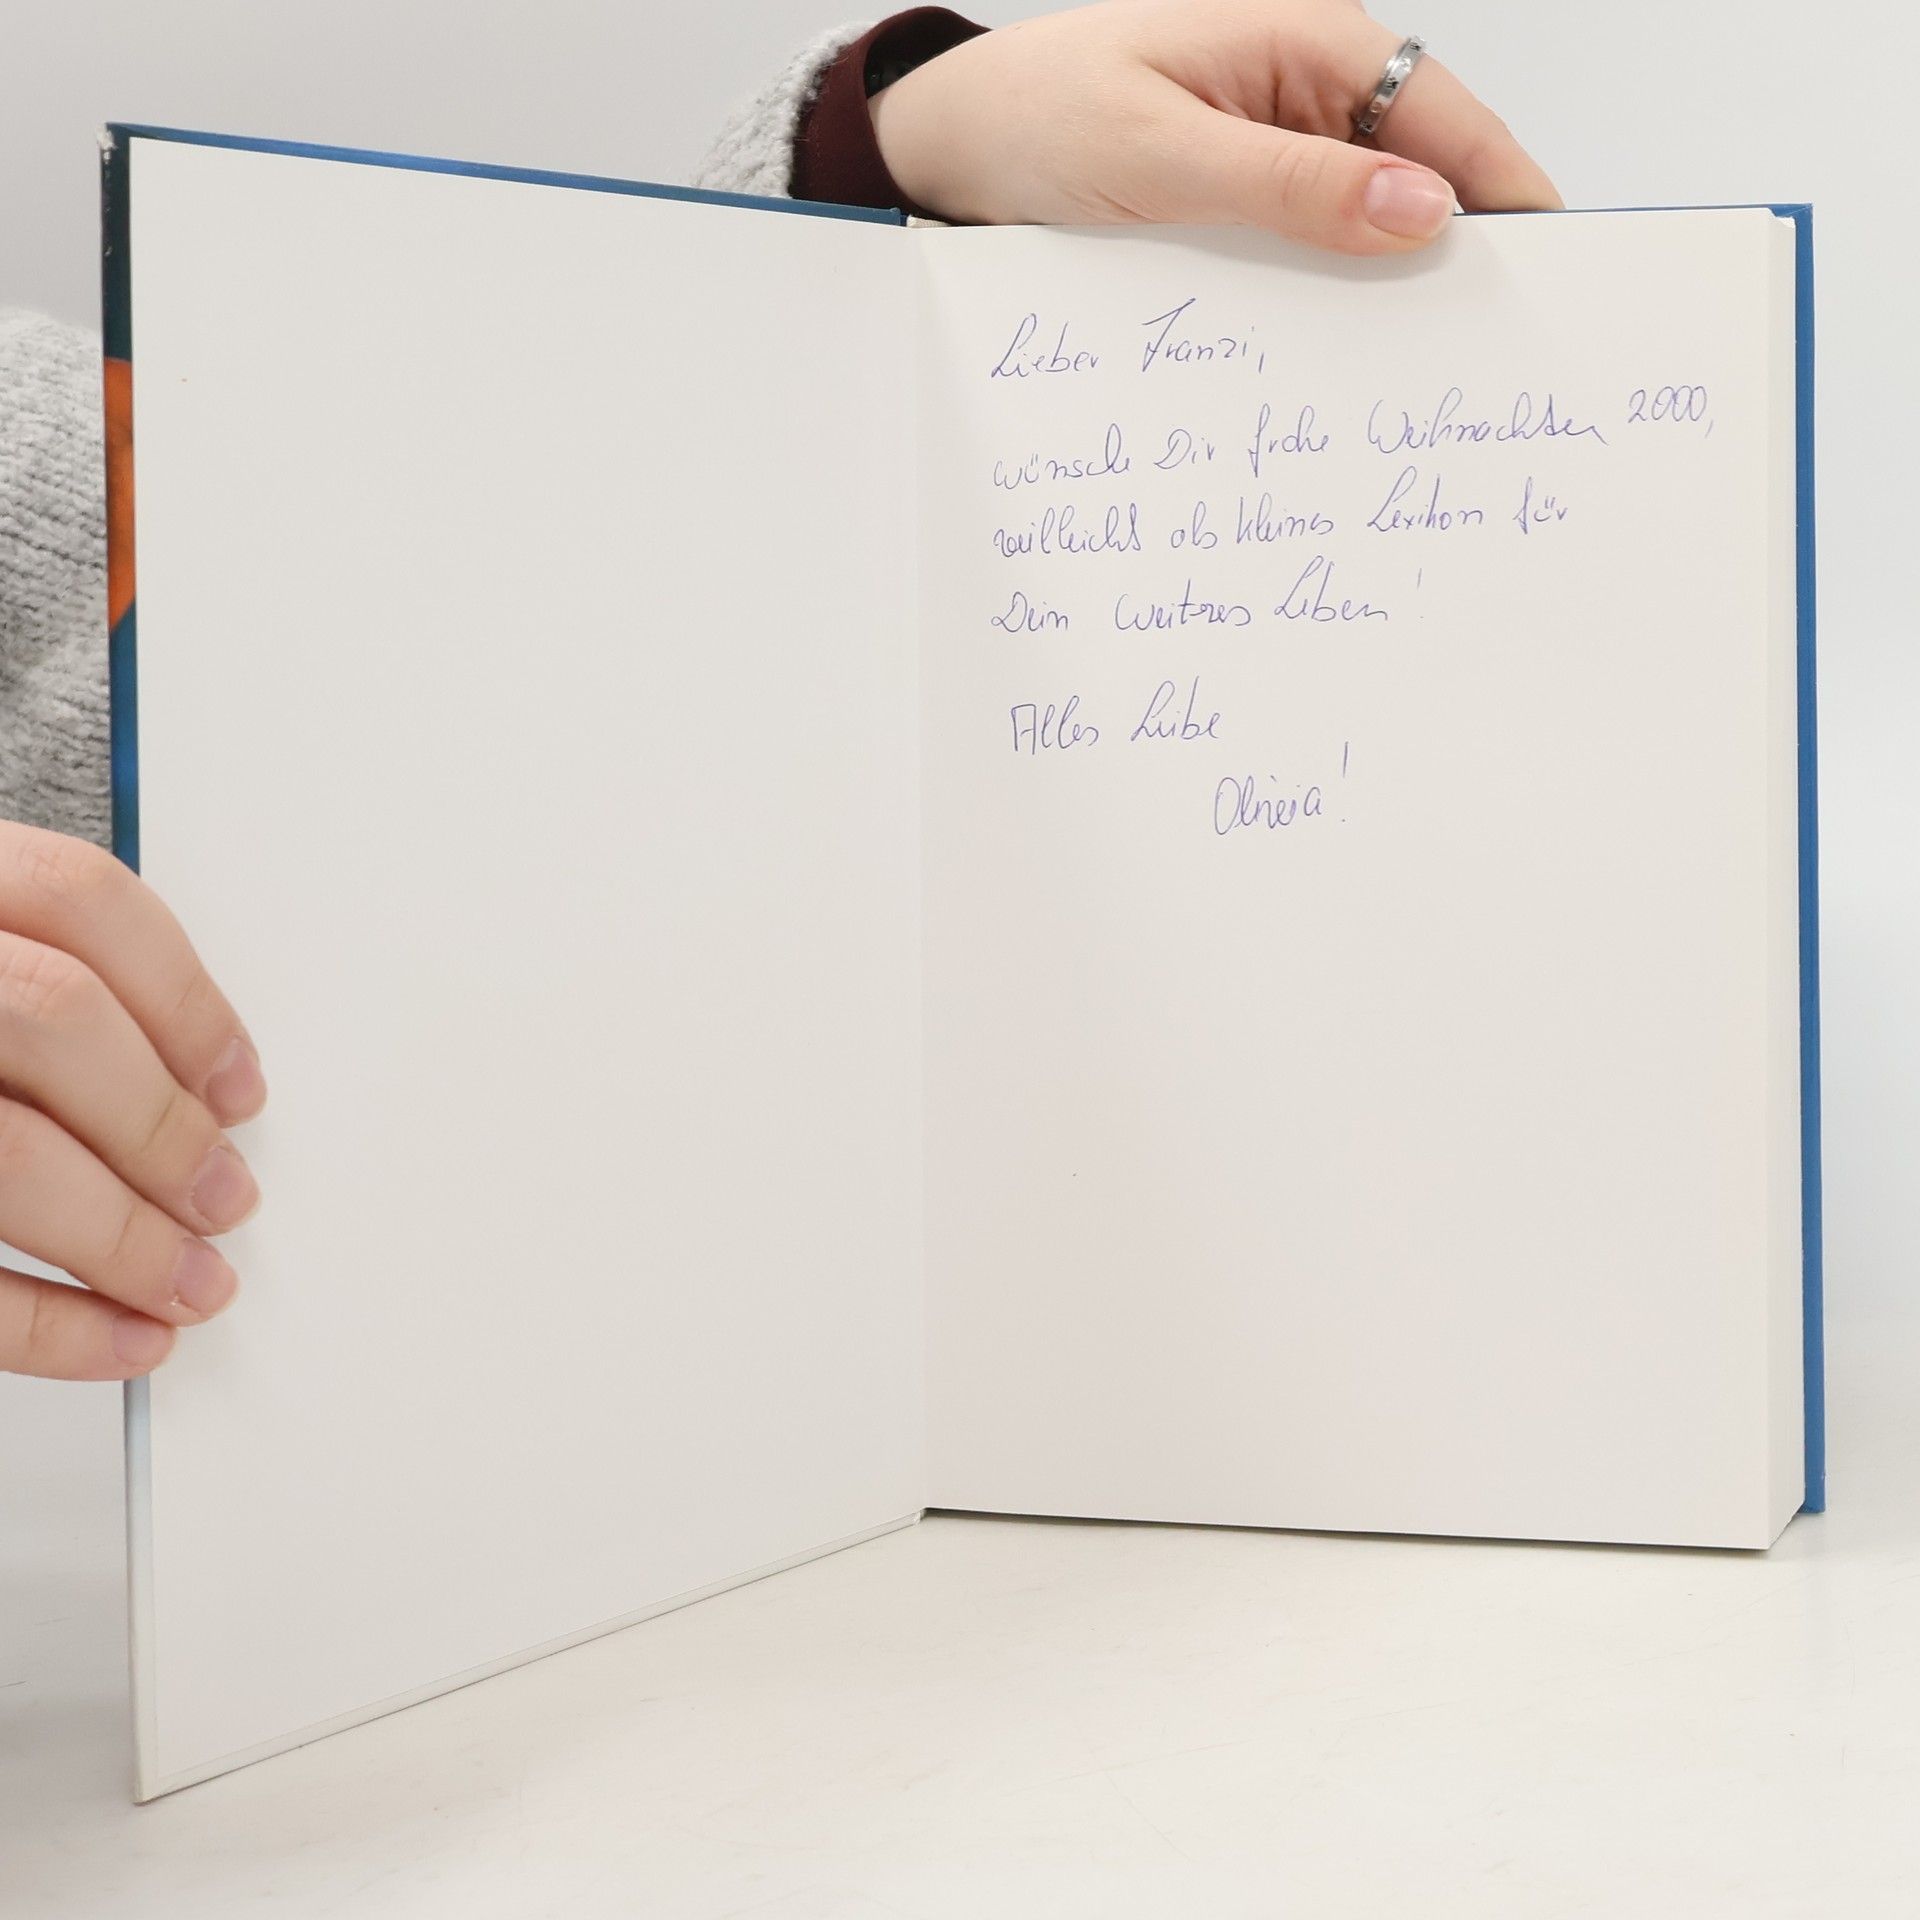 Lieber Franzi,
wünsche Dir frohe Weihnachten 2000,
veilleicht als kleines Lexikon für
Dein weiteres Leben!
Alles Liebe
Olivia!